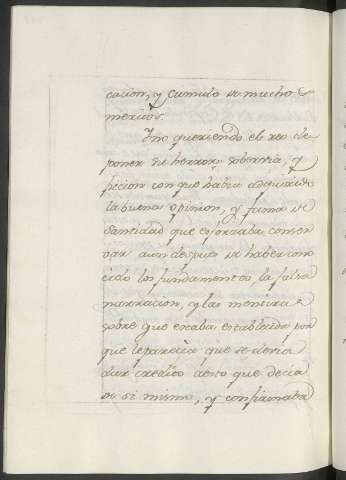 cacion, y cumulo de muchos
meritos.
Y no queriendo el reo de
poner su herror, soberbia, y
ficcion con que havia adquirido
la buena opinion, y fama de
santidad que esforzaba conser
var aun despues de haber cono
cido los fundamentos, la falsa
narracion, y las mentiras
sobre que estaba establecida por
que le parecia que se devia
dar credito a esto que decia
de si mismo, y confirmaba